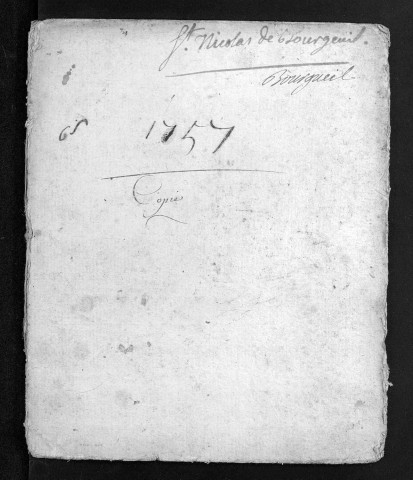 St. Nicolas de Bourgeuil.
Bourgueil
65 1757
Copie